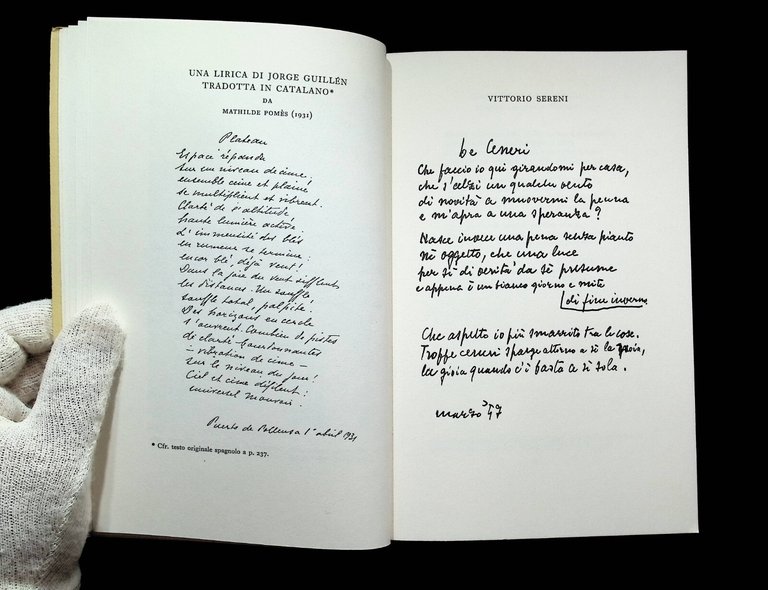 UNA LIRICA DI JORGE GUILLÉN
TRADOTTA IN CATALANO*
DA
MATHILDE POMÈS (1931)
Plateau
Espace répandu
Sur un niveau de cime,
ensemble cime et plaine
se multiplient et vibrent.
Clarté de l'altitude
haute lumière active.
L'immensité des blés
en rumeur se termine:
encor blé, déjà vent!
Dans la joie du vent sifflent
les distances. Un souffle
souffle total, palpite.
Des horizons en cercle
s'ouvrent. Combien de pistes
de clarté
— vibration de cime —
sur le niveau du jour!
Ciel et cime
universel
Puerto de Pollensa 1º abril 1931
* Cfr. testo originale spagnolo a p. 237.
VITTORIO SERENI
Le Ceneri
Che faccio io qui girandomi per casa,
che s'alzi un qualche vento
di novità a muovermi la penna
e m'apra a una speranza?
Nasce invece una pena senza pianto
né oggetto, che una luce
per sé di verità da sé presume
e appena è un bianco giorno e mite
di fine inverno
Che aspetto io più smarrito tra le cose.
Troppe ceneri sparge attorno a sé la noia,
la gioia quando c'è basta a sé sola.
marzo '57